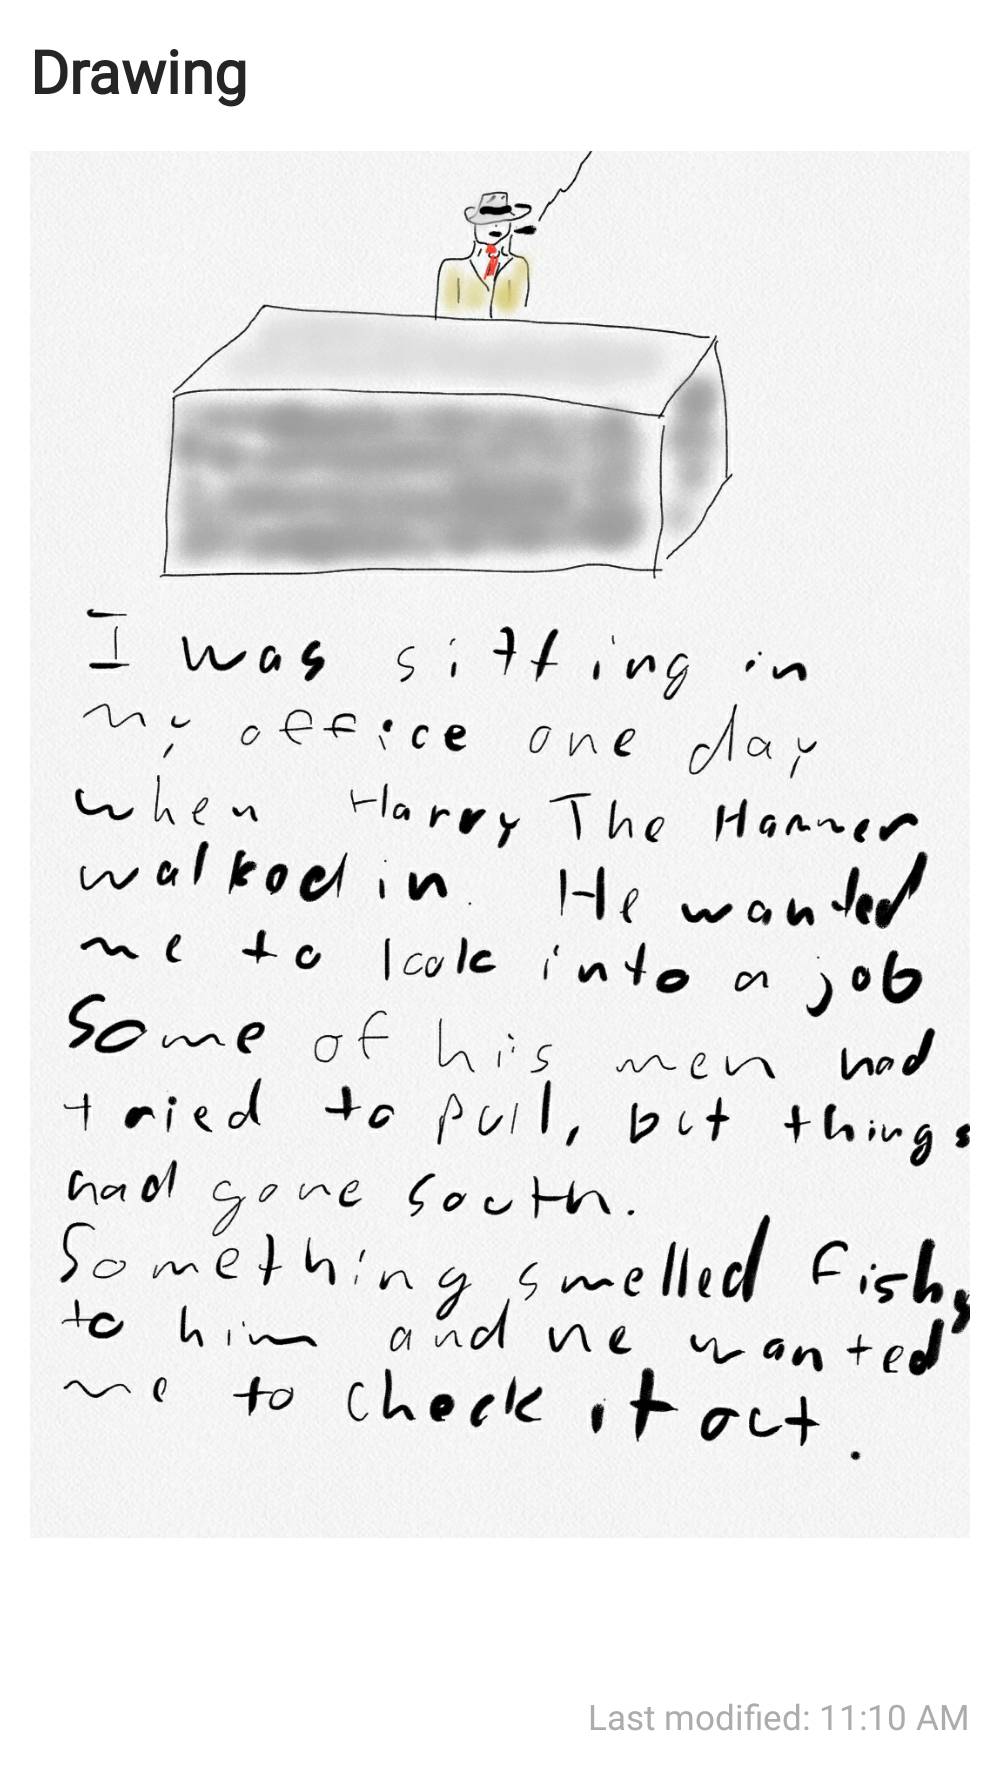 Drawing
I was sitting in
my office one day
when Harry The Hammer
walked in. He wanted
me to look into a job
some of his men had
tried to pull, but things
had gone south.
Something smelled fishy
to him and he wanted
me to check it out.
Last modified: 11:10 AM